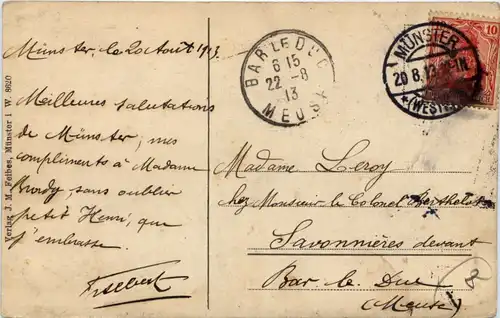 Münster, le 20 Août 1913.
Meilleures salutations
de Münster, mes
compliments à Madame
sans oublier
petit Henri, que
j'embrasse.
Verlag J. M. Fethes, Münster i W. 8020
BAR LE DUC
6 15
22 - 8
13
MEUSE
MÜNSTER
20.8.13
*(WESTF
10
Madame Leroy
chez Monsieur le Colonel Berthelot
Savonnières devant
Bar le Duc
(Meuse)
8